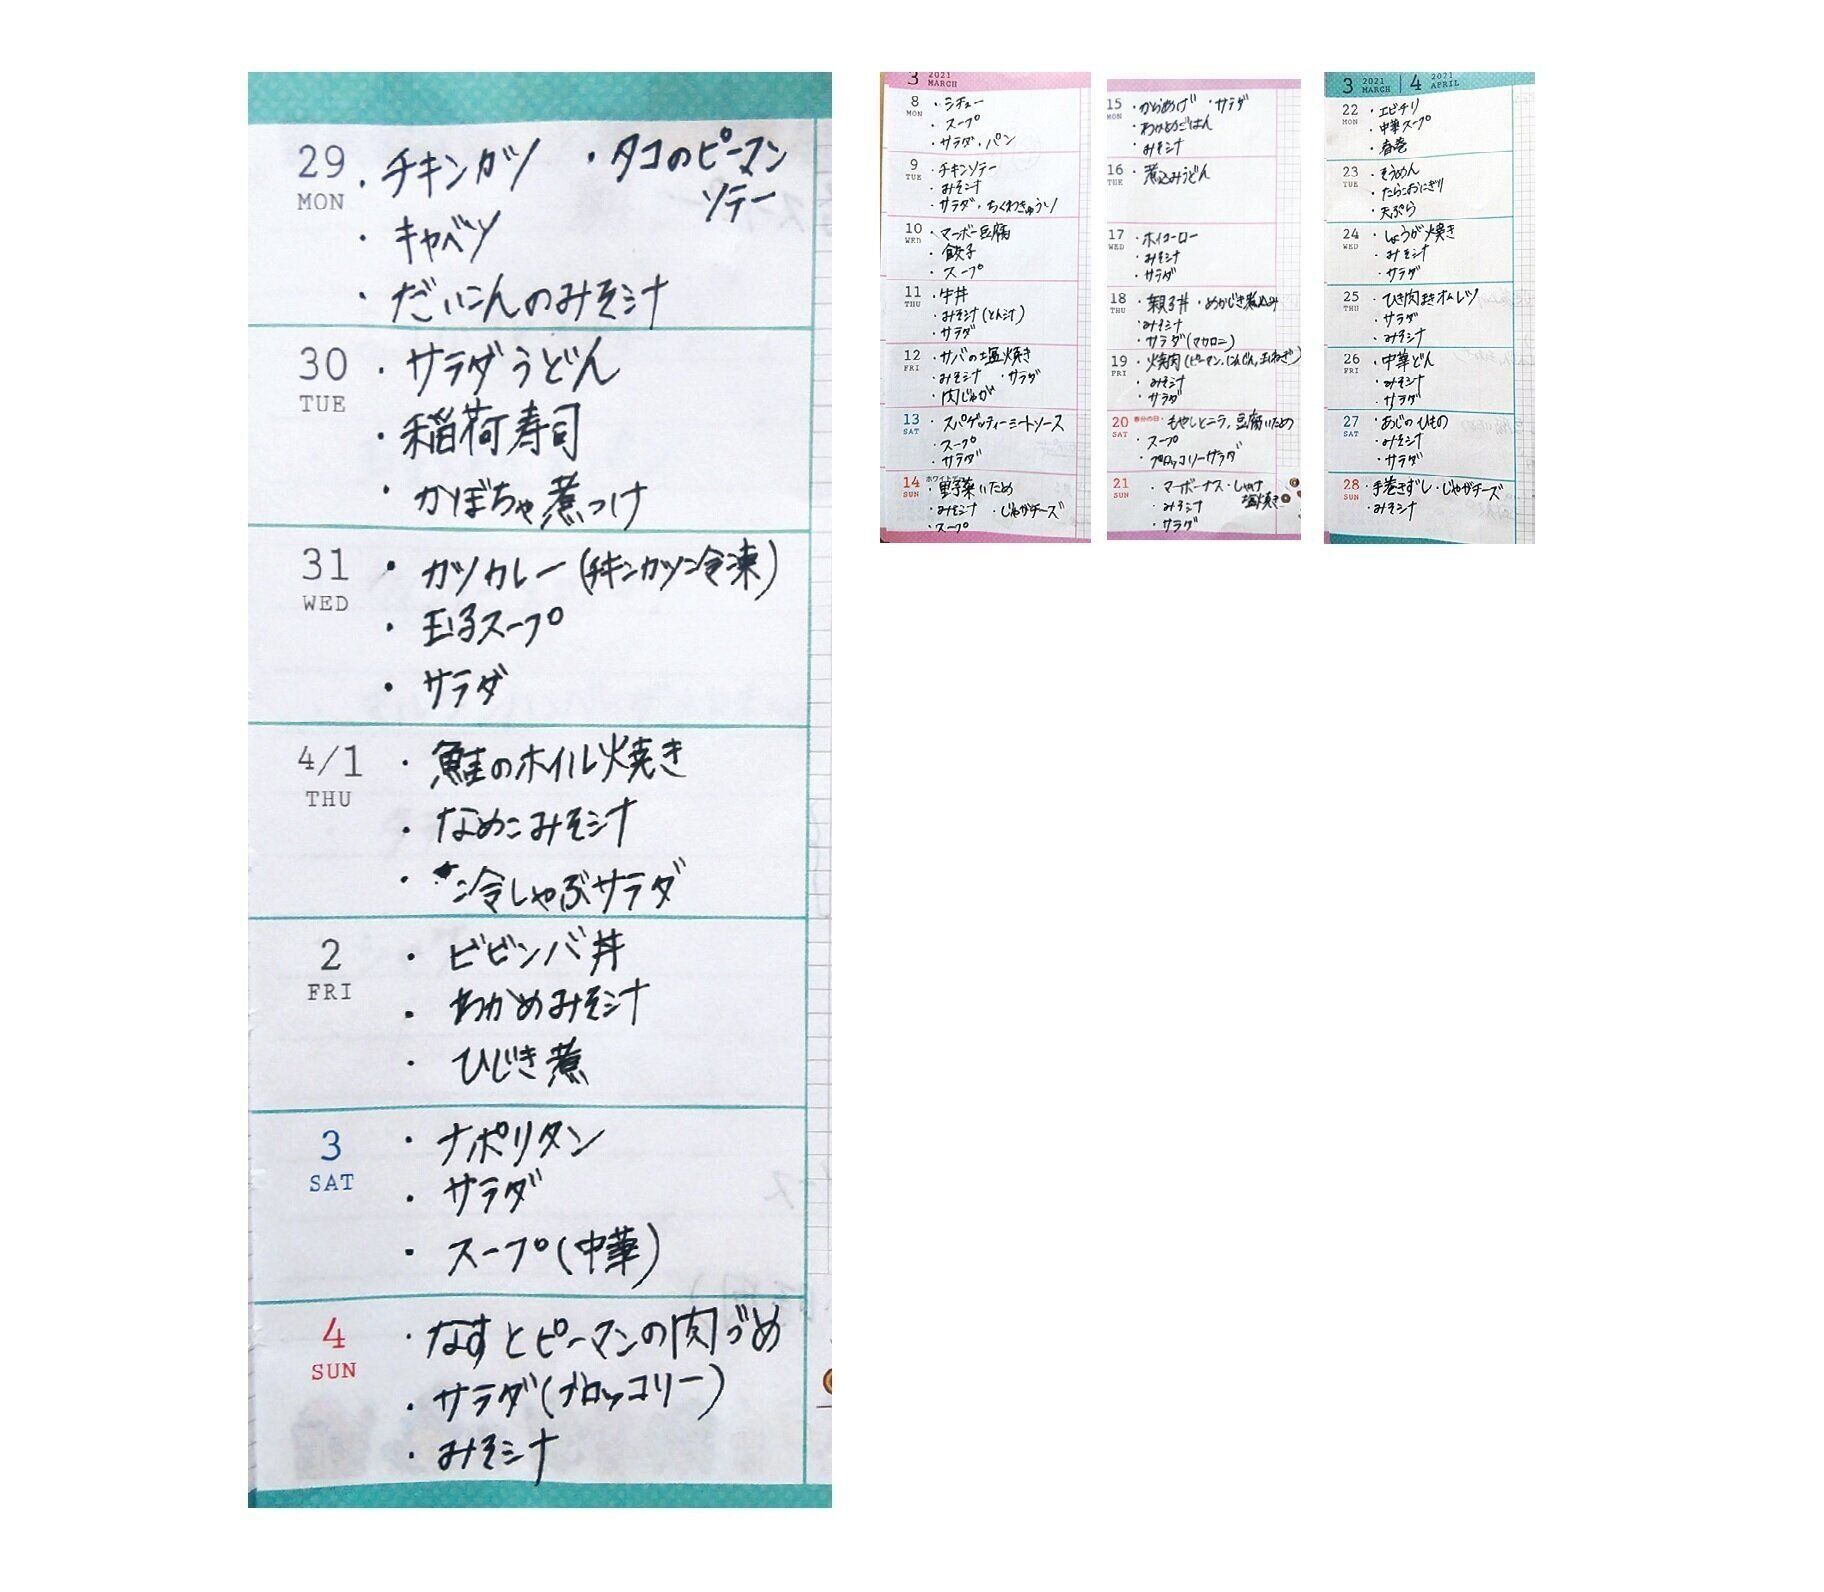 29 MON
・チキンカツ ・タコのピーマン
ソテー
・キャベツ
・だいこんのみそ汁
30 TUE
・サラダうどん
・稲荷寿司
・かぼちゃ煮つけ
31 WED
・カツカレー(チキンカツ冷凍)
・玉子スープ
・サラダ
4/1 THU
・鮭のホイル焼き
・なめこみそ汁
・冷しゃぶサラダ
2 FRI
・ビビンバ丼
・わかめみそ汁
・ひじき煮
3 SAT
・ナポリタン
・サラダ
・スープ(中華)
4 SUN
・なすとピーマンの肉づめ
・サラダ(ブロッコリー)
・みそ汁
3 2021 MARCH
8 MON
・シチュー
・スープ
・サラダ・パン
9 TUE
・チキンソテー
・みそ汁
・サラダ・ちくわきゅうり
10 WED
・マーボー豆腐
・餃子
・スープ
11 THU
・牛丼
・みそ汁(とん汁)
・サラダ
12 FRI
・サバの塩焼き
・みそ汁 ・サラダ
・肉じゃが
13 SAT
・スパゲッティーミートソース
・スープ
・サラダ
14 SUN
・野菜いため
・みそ汁 ・じゃがチーズ
・スープ
15 MON
・からあげ ・サラダ
・わかめごはん
・みそ汁
16 TUE
・煮込みうどん
17 WED
・ホイコーロー
・みそ汁
・サラダ
18 THU
・親子丼 ・めかじき煮込み
・みそ汁
・サラダ(マカロニ)
19 FRI
・焼肉(ピーマン,にんじん,玉ねぎ)
・みそ汁
・サラダ
20 SAT 春分の日
・もやしとニラ,豆腐いため
・スープ
・ブロッコリーサラダ
21 SUN
・マーボーナス・しゃけ
塩焼き
・みそ汁
・サラダ
3 2021 MARCH 4 2021 APRIL
22 MON
・エビチリ
・中華スープ
・春巻
23 TUE
・そうめん
・たらこおにぎり
・天ぷら
24 WED
・しょうが焼き
・みそ汁
・サラダ
25 THU
・ひき肉オムレツ
・サラダ
・みそ汁
26 FRI
・中華どん
・みそ汁
・サラダ
27 SAT
・あじのひもの
・みそ汁
・サラダ
28 SUN
・手巻きずし・じゃがチーズ
・みそ汁